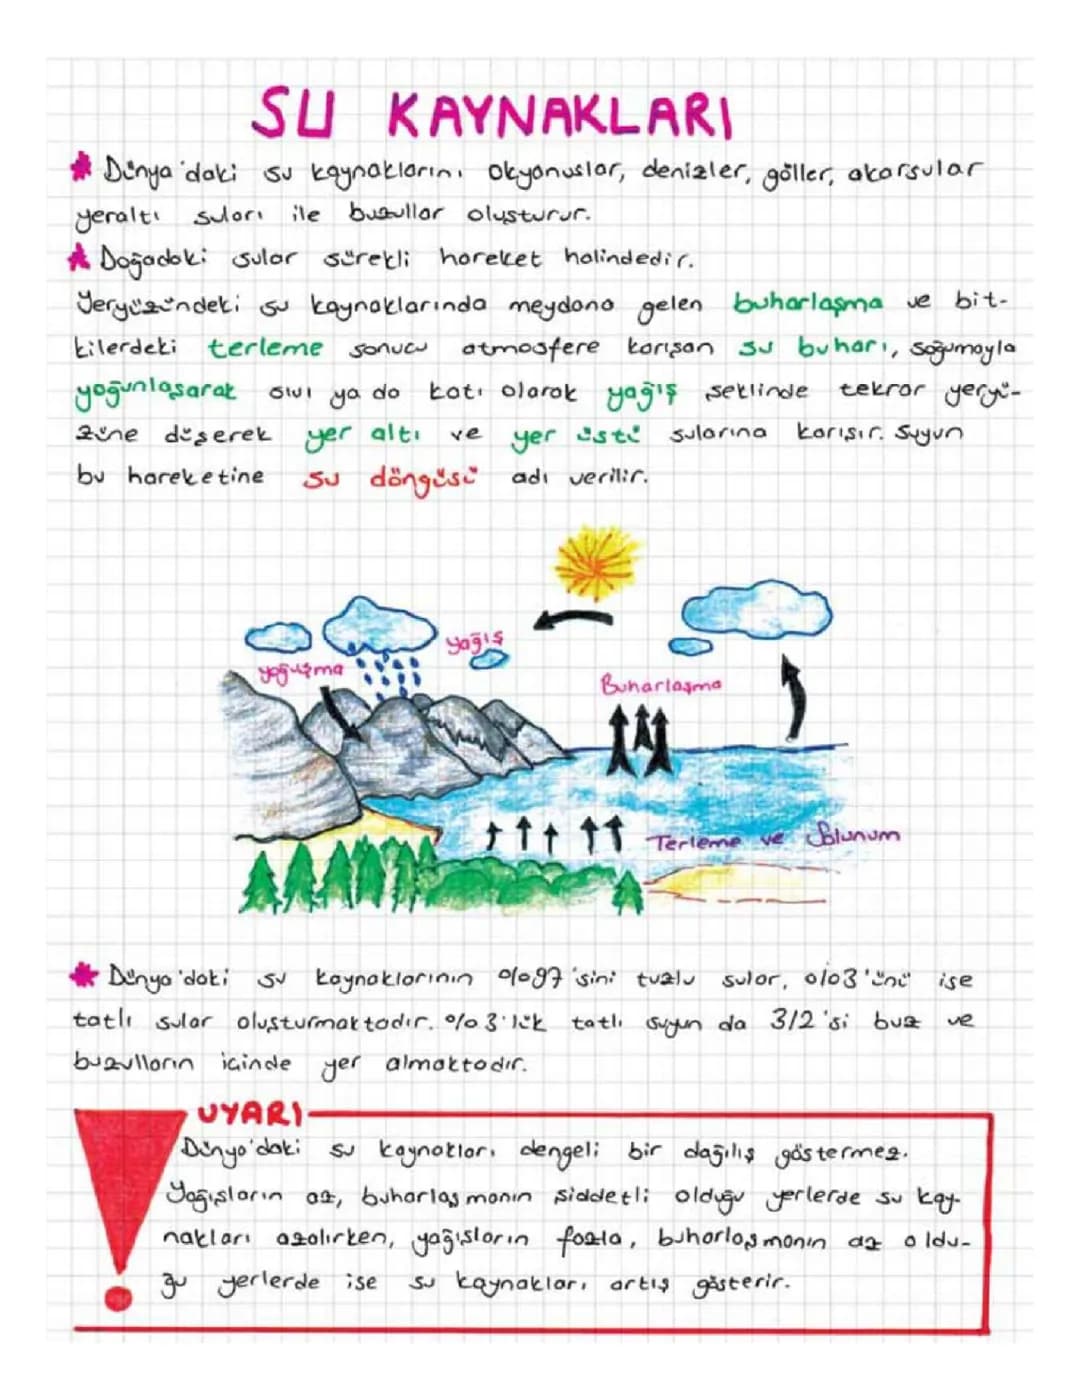 SU KAYNAKLARI
* Dünya'daki su kaynaklarını okyanuslar, denizler, göller, akarsular
yeraltı suları ile buzullar oluşturur.
* Doğadaki sular sürekli hareket halindedir.
Yeryüzündeki su kaynaklarında meydana gelen buharlaşma ve bit-
kilerdeki terleme sonucu atmosfere karışan su buharı, soğumayla
yoğunlaşarak sıvı ya da katı olarak yağış şeklinde tekrar yeryü-
züne düşerek yer altı ve yer üstü sularına karışır. Suyun
bu hareketine su döngüsü adı verilir.
yağış
yoğuşma
Buharlaşma
Terleme ve Solunum
* Dünya'daki su kaynaklarının %97'sini tuzlu sular, %3'ünü ise
tatlı sular oluşturmaktadır. %3'lük tatlı suyun da 3/2'si buz ve
buzulların içinde yer almaktadır.
UYARI
Dünya'daki su kaynakları dengeli bir dağılış göstermez.
Yağışların az, buharlaşmanın şiddetli olduğu yerlerde su kay-
nakları azalırken, yağışların fazla, buharlaşmanın az oldu-
ğu yerlerde ise su kaynakları artış gösterir.